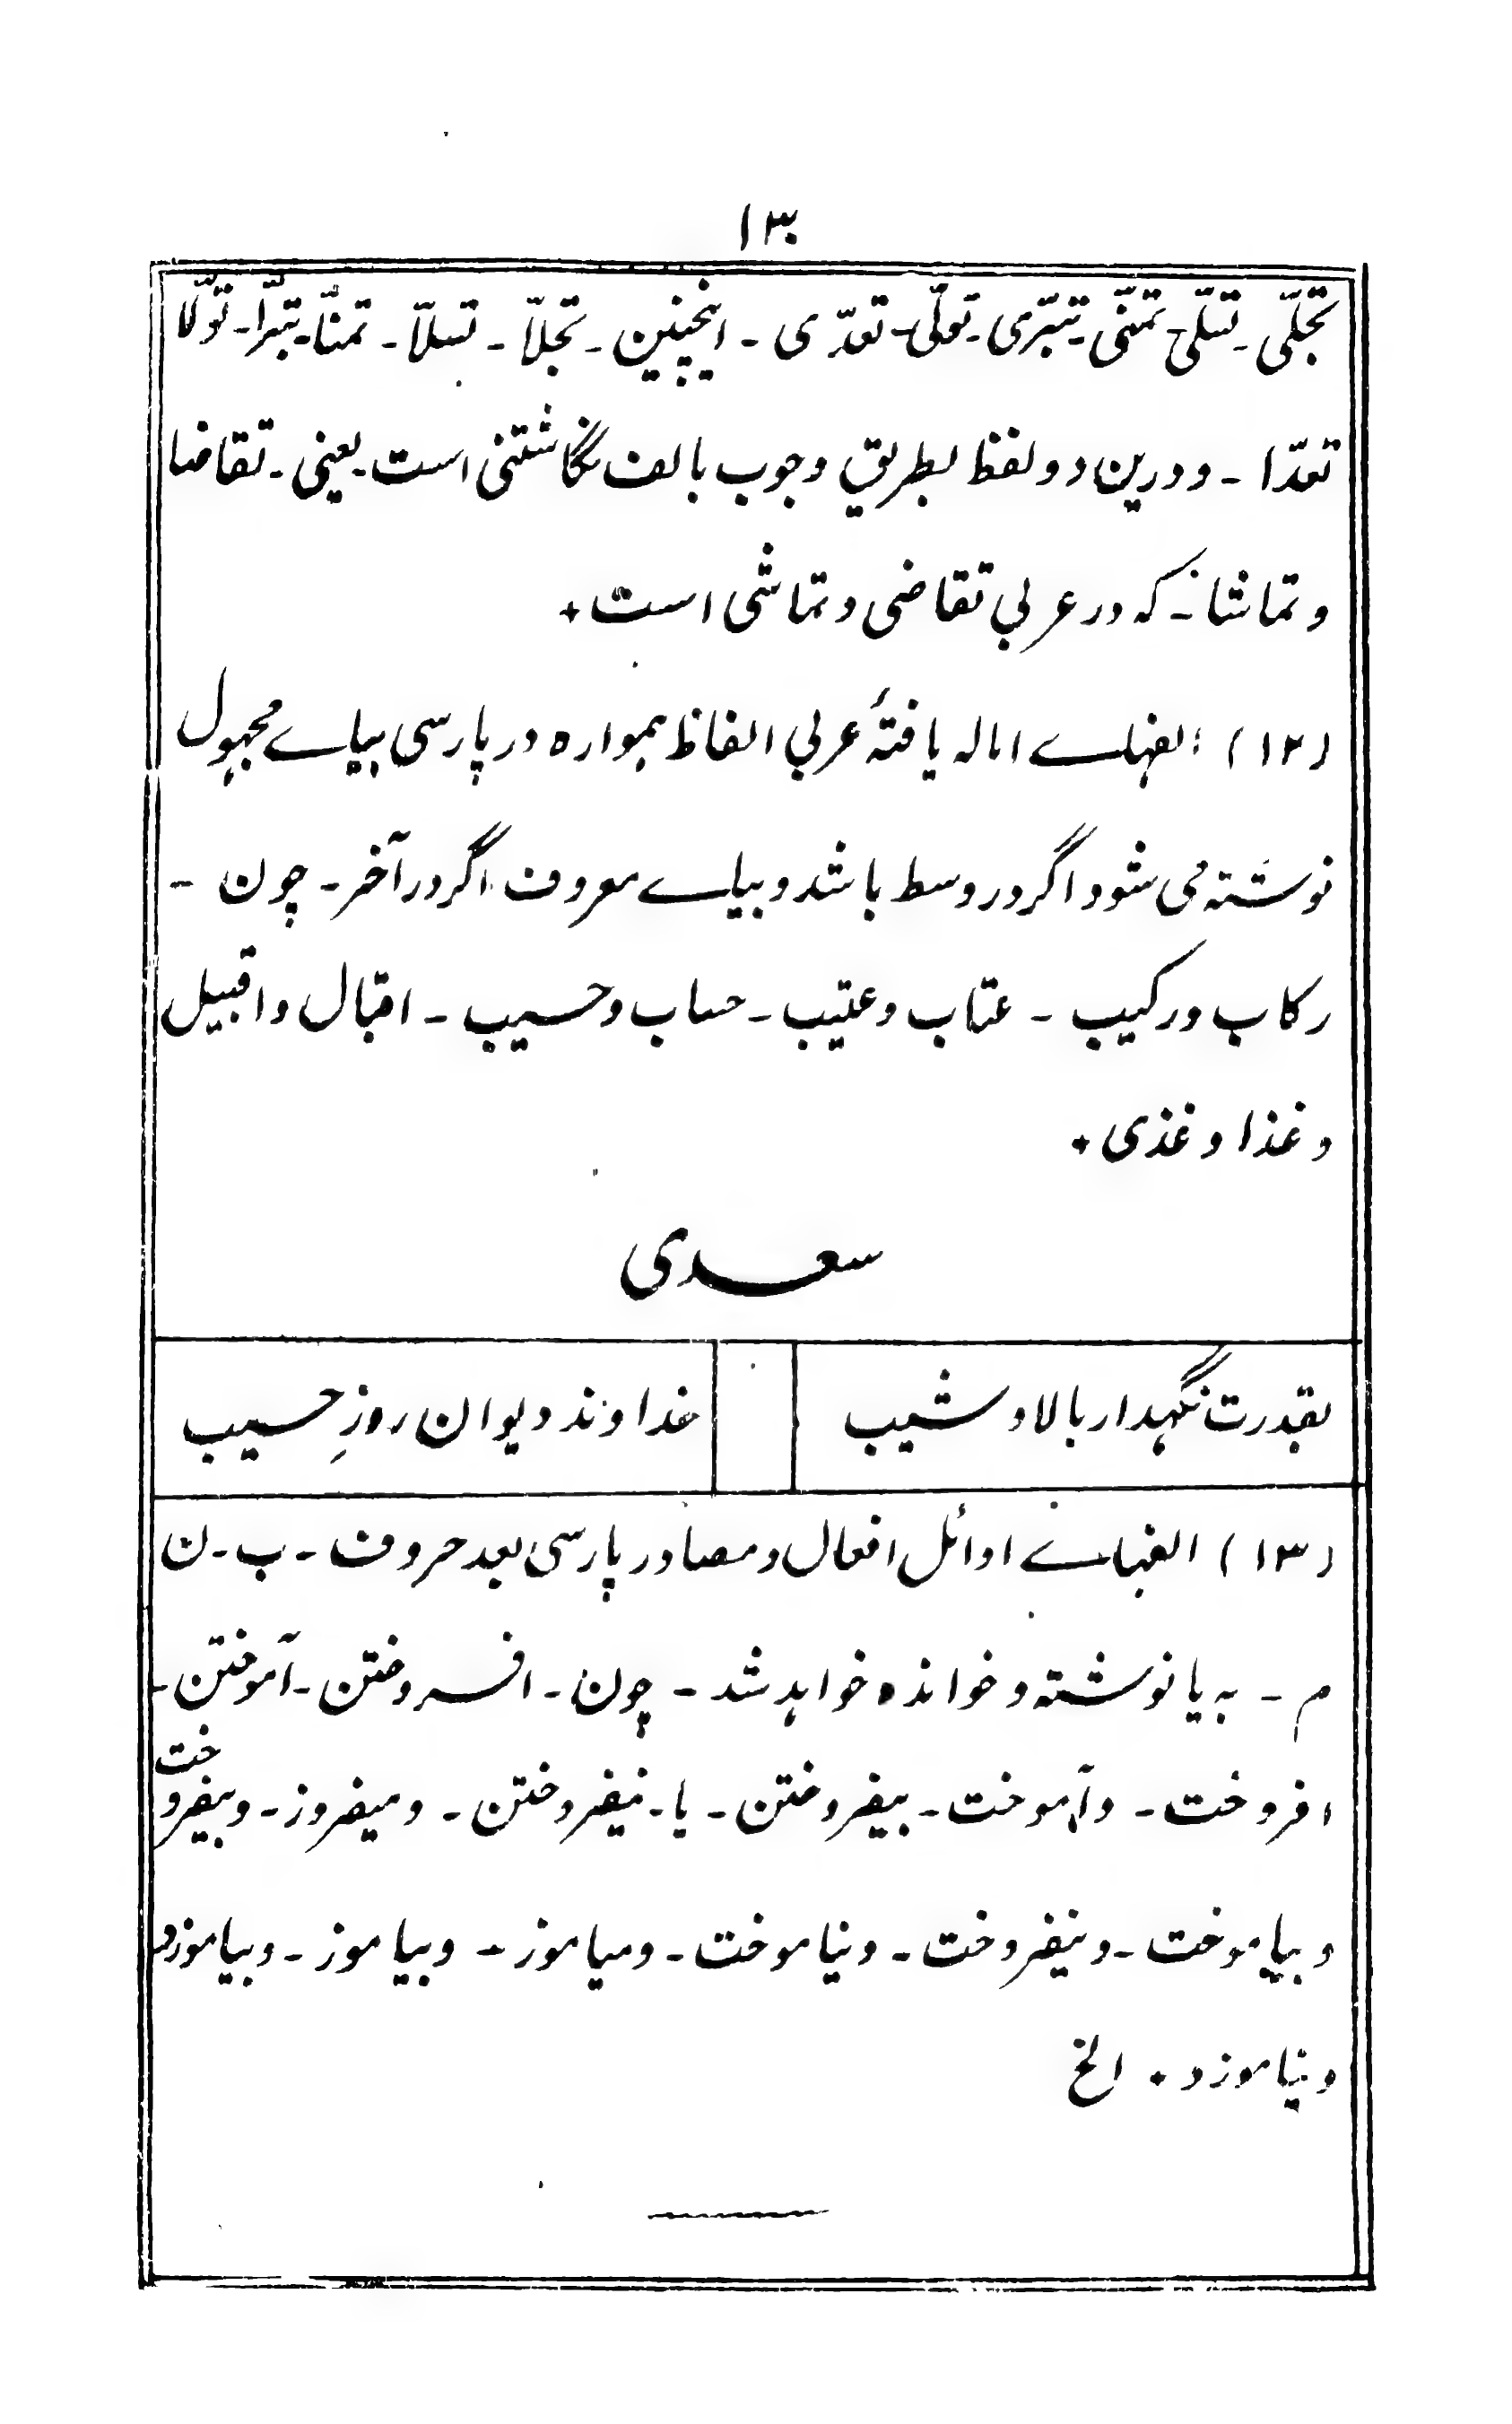 ۱۳
تجلّی ـ تسلّی ـ تمنّی ـ تبرّی ـ تولّی ـ تعدّی ـ اینچنین ـ تجلّا ـ تسلّا ـ تمنّا ـ تبرّا ـ تولّا
تعدّا ـ و درین دو لفظ بطریق وجوب بالف نگاشتنی است ـ یعنی ـ تقاضا
و تماشا ـ که در عربی تقاضی و تماشی است ٭
(۱۲) الفہاے امالہ یافتۂ عربی الفاظ ہموارہ در پارسی بیاے مجہول
نوشته می شود اگر در وسط باشد و بیاے معروف اگر در آخر ـ چون ـ
رکاب و رکیب ـ عتاب و عتیب ـ حساب و حسیب ـ اقبال و اقبیل
و غذا و غذی ٭
سعدی
بقدرت نگہدار بالا و شیب
خداوند دیوان روزِ حسیب
(۱۳) الفہاے اوائل افعال و مصادر پارسی بعد حروف ـ ب ـ ن
م ـ بہ یا نوشته و خوانده خواہد شد ـ چون ـ افروختن ـ آموختن ـ
افروخت ـ و آموخت ـ بیفروختن ـ یا ـ نیفروختن ـ و میفروز ـ و بیفروخت
و بیاموخت ـ و نیفروخت ـ و نیاموخت ـ و میاموز ـ و بیاموز ـ و بیاموزد
و نیاموزد ٭ الخ